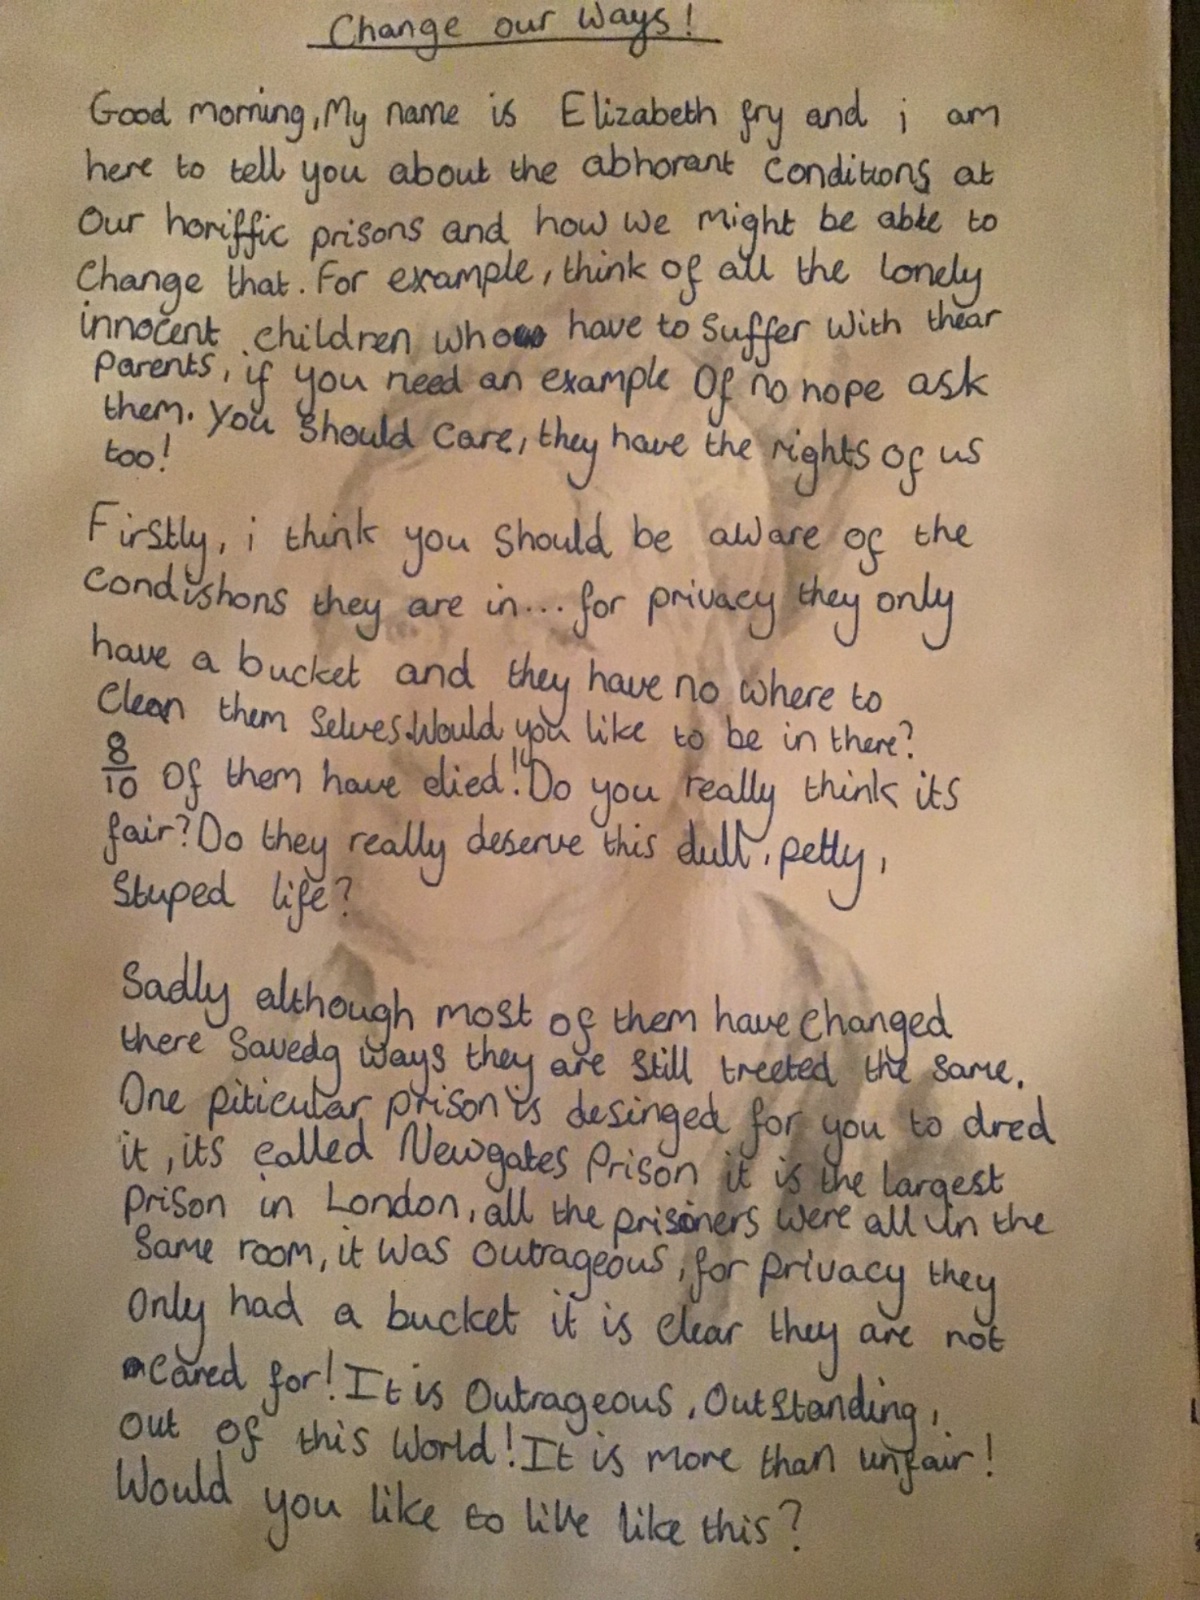 Change our Ways!
Good morning, My name is Elizabeth fry and i am
here to tell you about the abhorant conditions at
Our horiffic prisons and how we might be able to
Change that. For example, think of all the lonely
innocent children who have to suffer with thear
Parents, if you need an example Of no hope ask
them. you should care, they have the rights of us
too!
Firstly, i think you should be aware of the
condishons they are in... for privacy they only
have a bucket and they have no where to
Clean them selves. Would you like to be in there?
8/10 Of them have died! Do you really think its
fair? Do they really deserve this dull, petty,
Stuped life?
Sadly although most of them have changed
there Savedg ways they are still treeted the same.
One piticular prison is desinged for you to dred
it, its called Newgates Prison it is the largest
Prison in London, all the prisoners were all in the
Same room, it was outrageous, for privacy they
only had a bucket it is clear they are not
cared for! It is Outrageous, Outstanding,
out of this world! It is more than unfair!
Would you like to live like this?